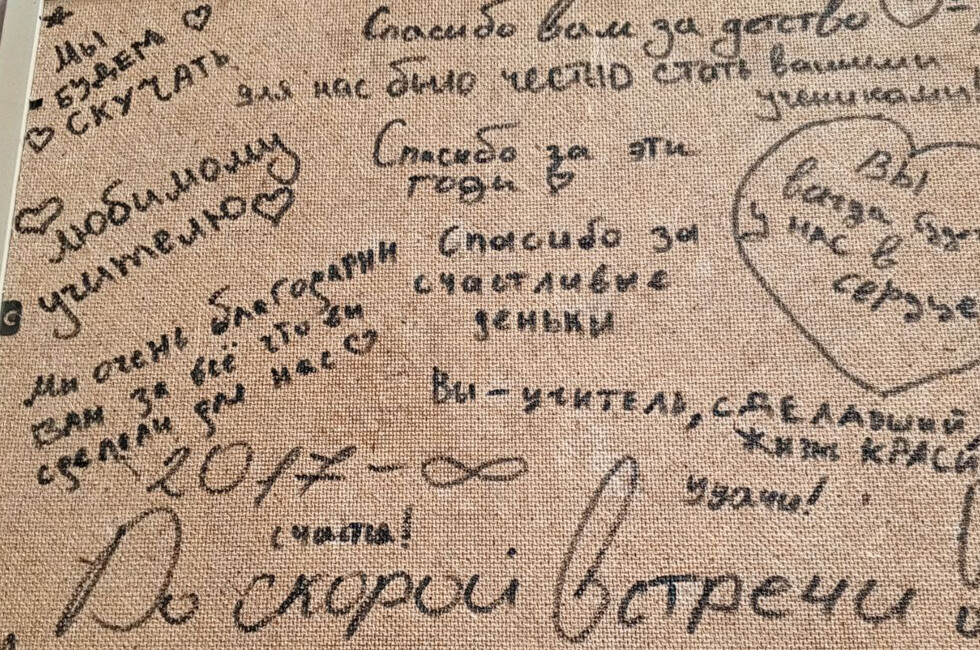 Мы
БУДЕМ
СКУЧАТЬ
Спасибо вам за детство
для нас было честью стать вашими
учениками
любимому
учителю
Спасибо за эти
годы
Вы
всегда
у нас в
сердце
Спасибо за
счастливые
деньки
Мы очень благодарны
вам за всё что вы
сделали для нас
Вы - учитель, сделавший
жизнь
2017 - ∞
Удачи!
счастья!
До скорой встречи